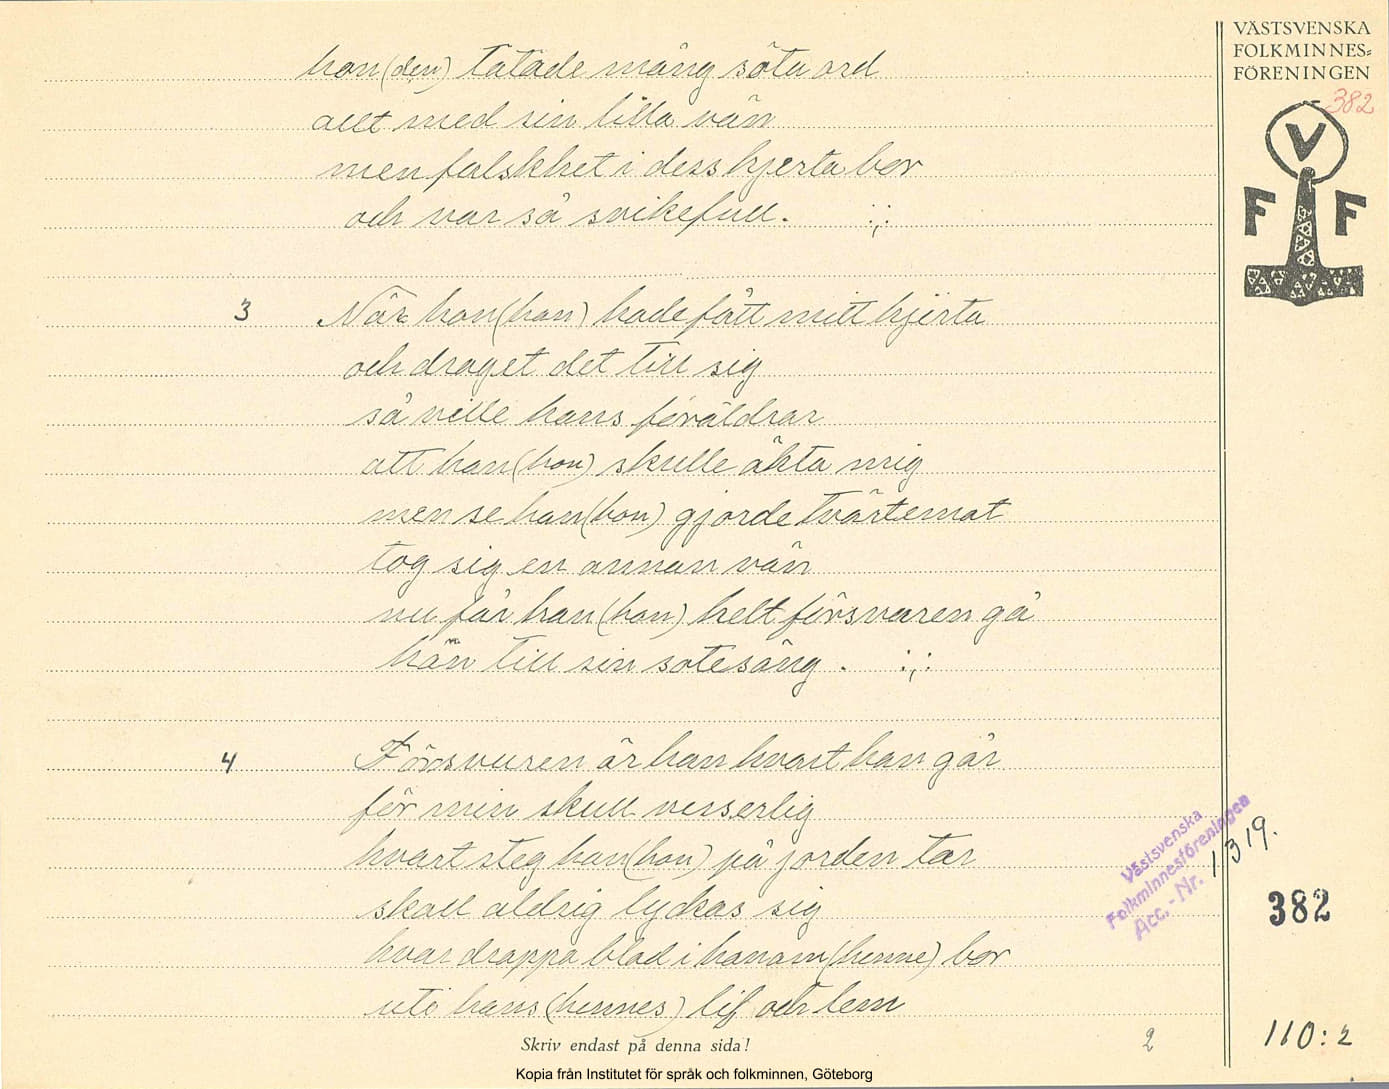 VÄSTSVENSKA
FOLKMINNES-
FÖRENINGEN
382
V
F F
han (den) talade mång söta ord
allt med sin lilla vän
men falskhet i dess hjerta bor
och var så svikefull. :,:
3 När han (hon) hade fått mitt hjerta
och draget det till sig
så ville hans föräldrar
att han (hon) skulle äkta mig
men se han (hon) gjorde tvärtemot
tog sig en annan vän
nu får han (hon) helt försvuren gå
hän till sin sotesäng. :,:
4 Försvuren är han hvart han går
för min skull visserlig
hvart steg han (hon) på jorden tar
skall aldrig lyckas sig
hvar droppa blod i honom (henne) bor
uti hans (hennes) lif och lem
Västsvenska
Folkminnesföreningen
Acc.-Nr. 1319.
382
Skriv endast på denna sida!
2
110:2
Kopia från Institutet för språk och folkminnen, Göteborg